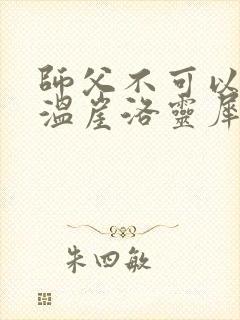 師父不可以
溫崖洛靈犀
朱四敏